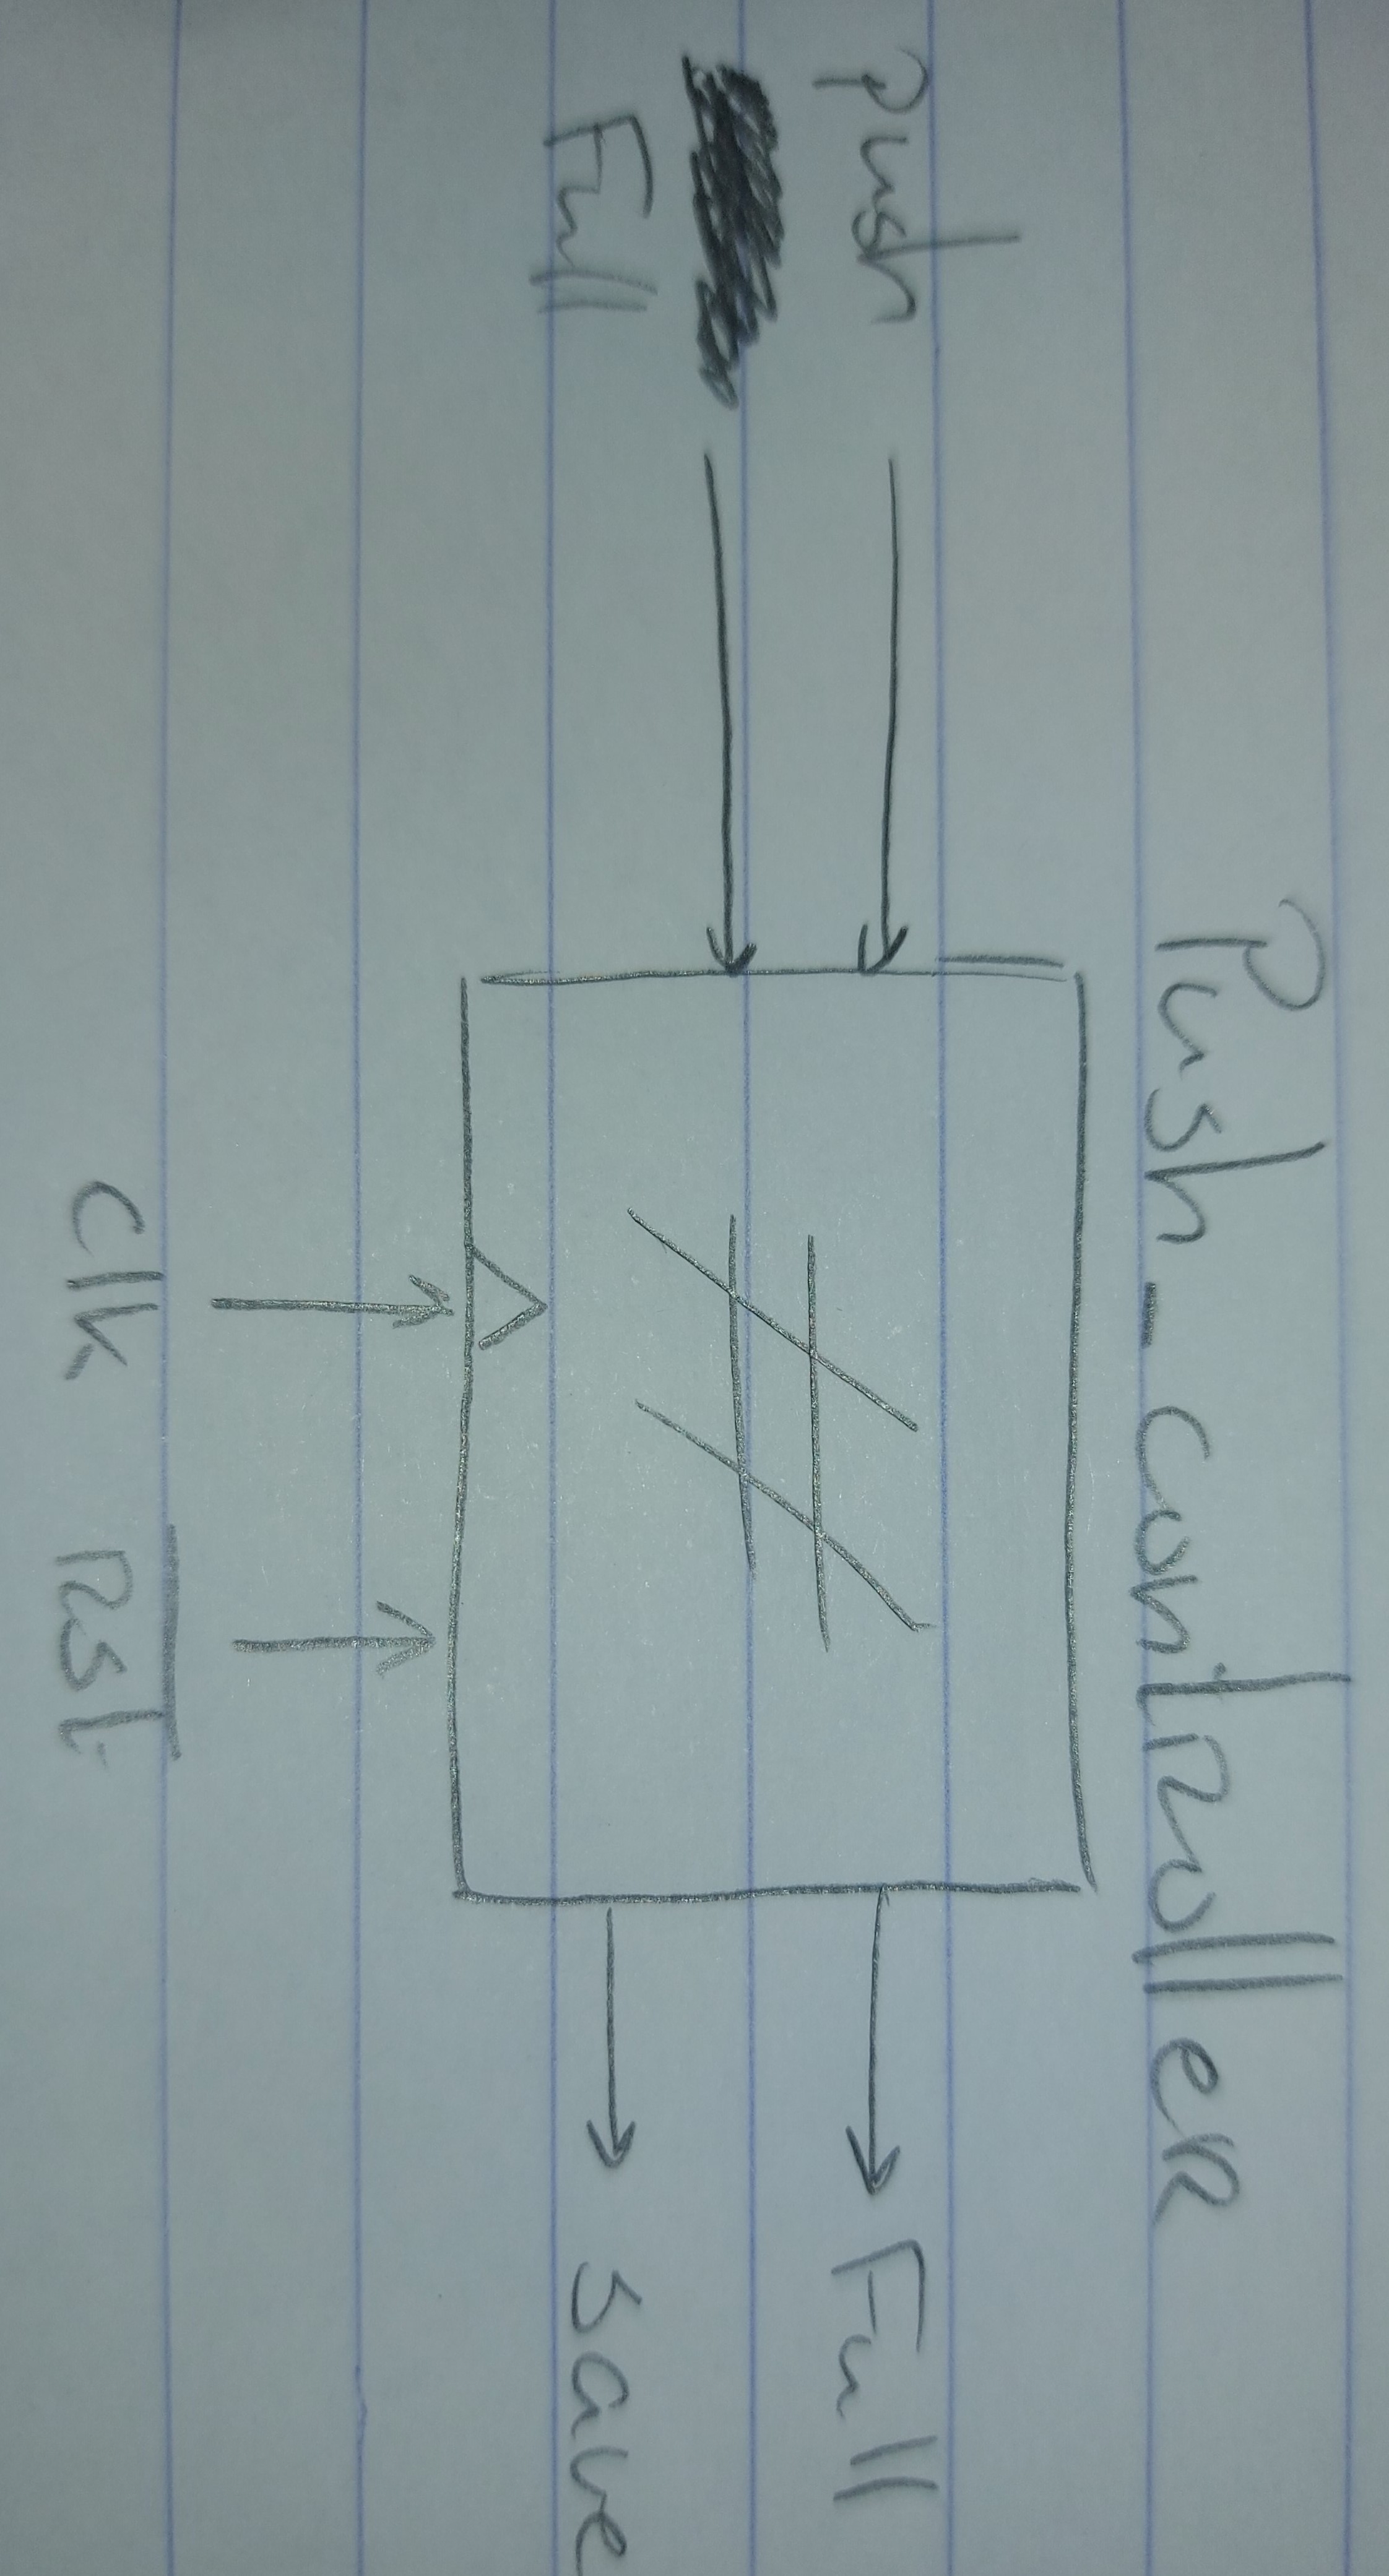 Push_controller
push
Full
Full
save
#
clk
Rst